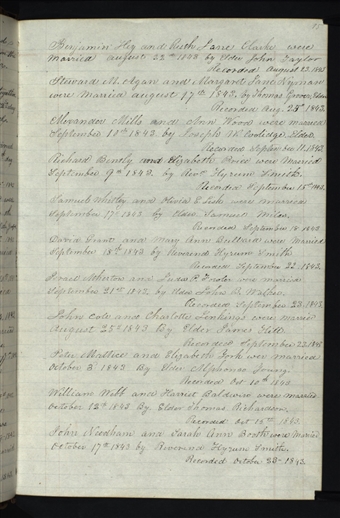 Benjamin Hey and Ruth Clarke were
married august 22th 1843 by Elder John Taylor
Recorded August 23. 1843
M. Agan and Margaret Lyman
were married august 17th 1843. by Thomas Grover, Elder
Recorded Aug. 28th 1843.
Alexander Mills and Ann Wood were married
September 10th 1843. by Joseph W. Coolidge Elder.
Recorded September 11. 1843.
Richard Bently and Elizabeth Price were Married
September 9th 1843. by Revd Hyrum Smith.
Recorded September 15th 1843.
Samuel Whitley and were married
September 17th 1843 by Elder Samuel Miles.
Recorded September 18. 1843.
David Grant and Mary Ann Bullard were Married
September 18th 1843 by Reverend Hyrum Smith
Recorded September 22. 1843.
Israel and were married
September 21st 1843. by Elder John
Recorded September 23. 1843.
John Cole and Charlotte Jenkings were married
August 25th 1843 By. Elder James
Recorded September 23. 1843
Peter and Elizabeth were married
October 3d 1843. By Elder Alphonso Young.
Recorded Oct 10th 1843.
William Webb and Harriet were married
October 12th 1843 By Elder Thomas Richardson.
Recorded Oct 15th 1843.
John Needham and Sarah Ann Booth were Married
October 17th 1843 by Reverend Hyrum Smith.
Recorded October 23. 1843.